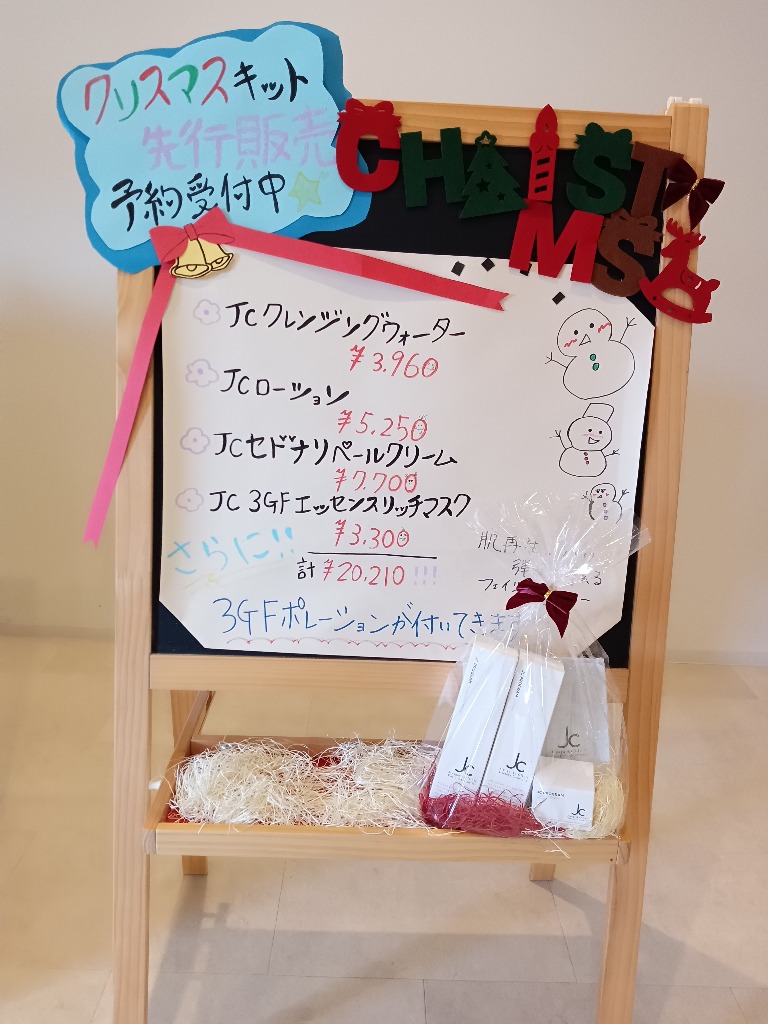 クリスマスキット
先行販売
予約受付中
CHRIST
MS
JCクレンジングウォーター
¥3,960
JCローション
¥5,250
JCセドナリペールクリーム
¥7,700
JC 3GFエッセンスリッチマスク
¥3,300
さらに!!
計 ¥20,210 !!!
肌再生
弾
フェイ
3GFポレーションが付いてきます
JC
JC
JC
JC